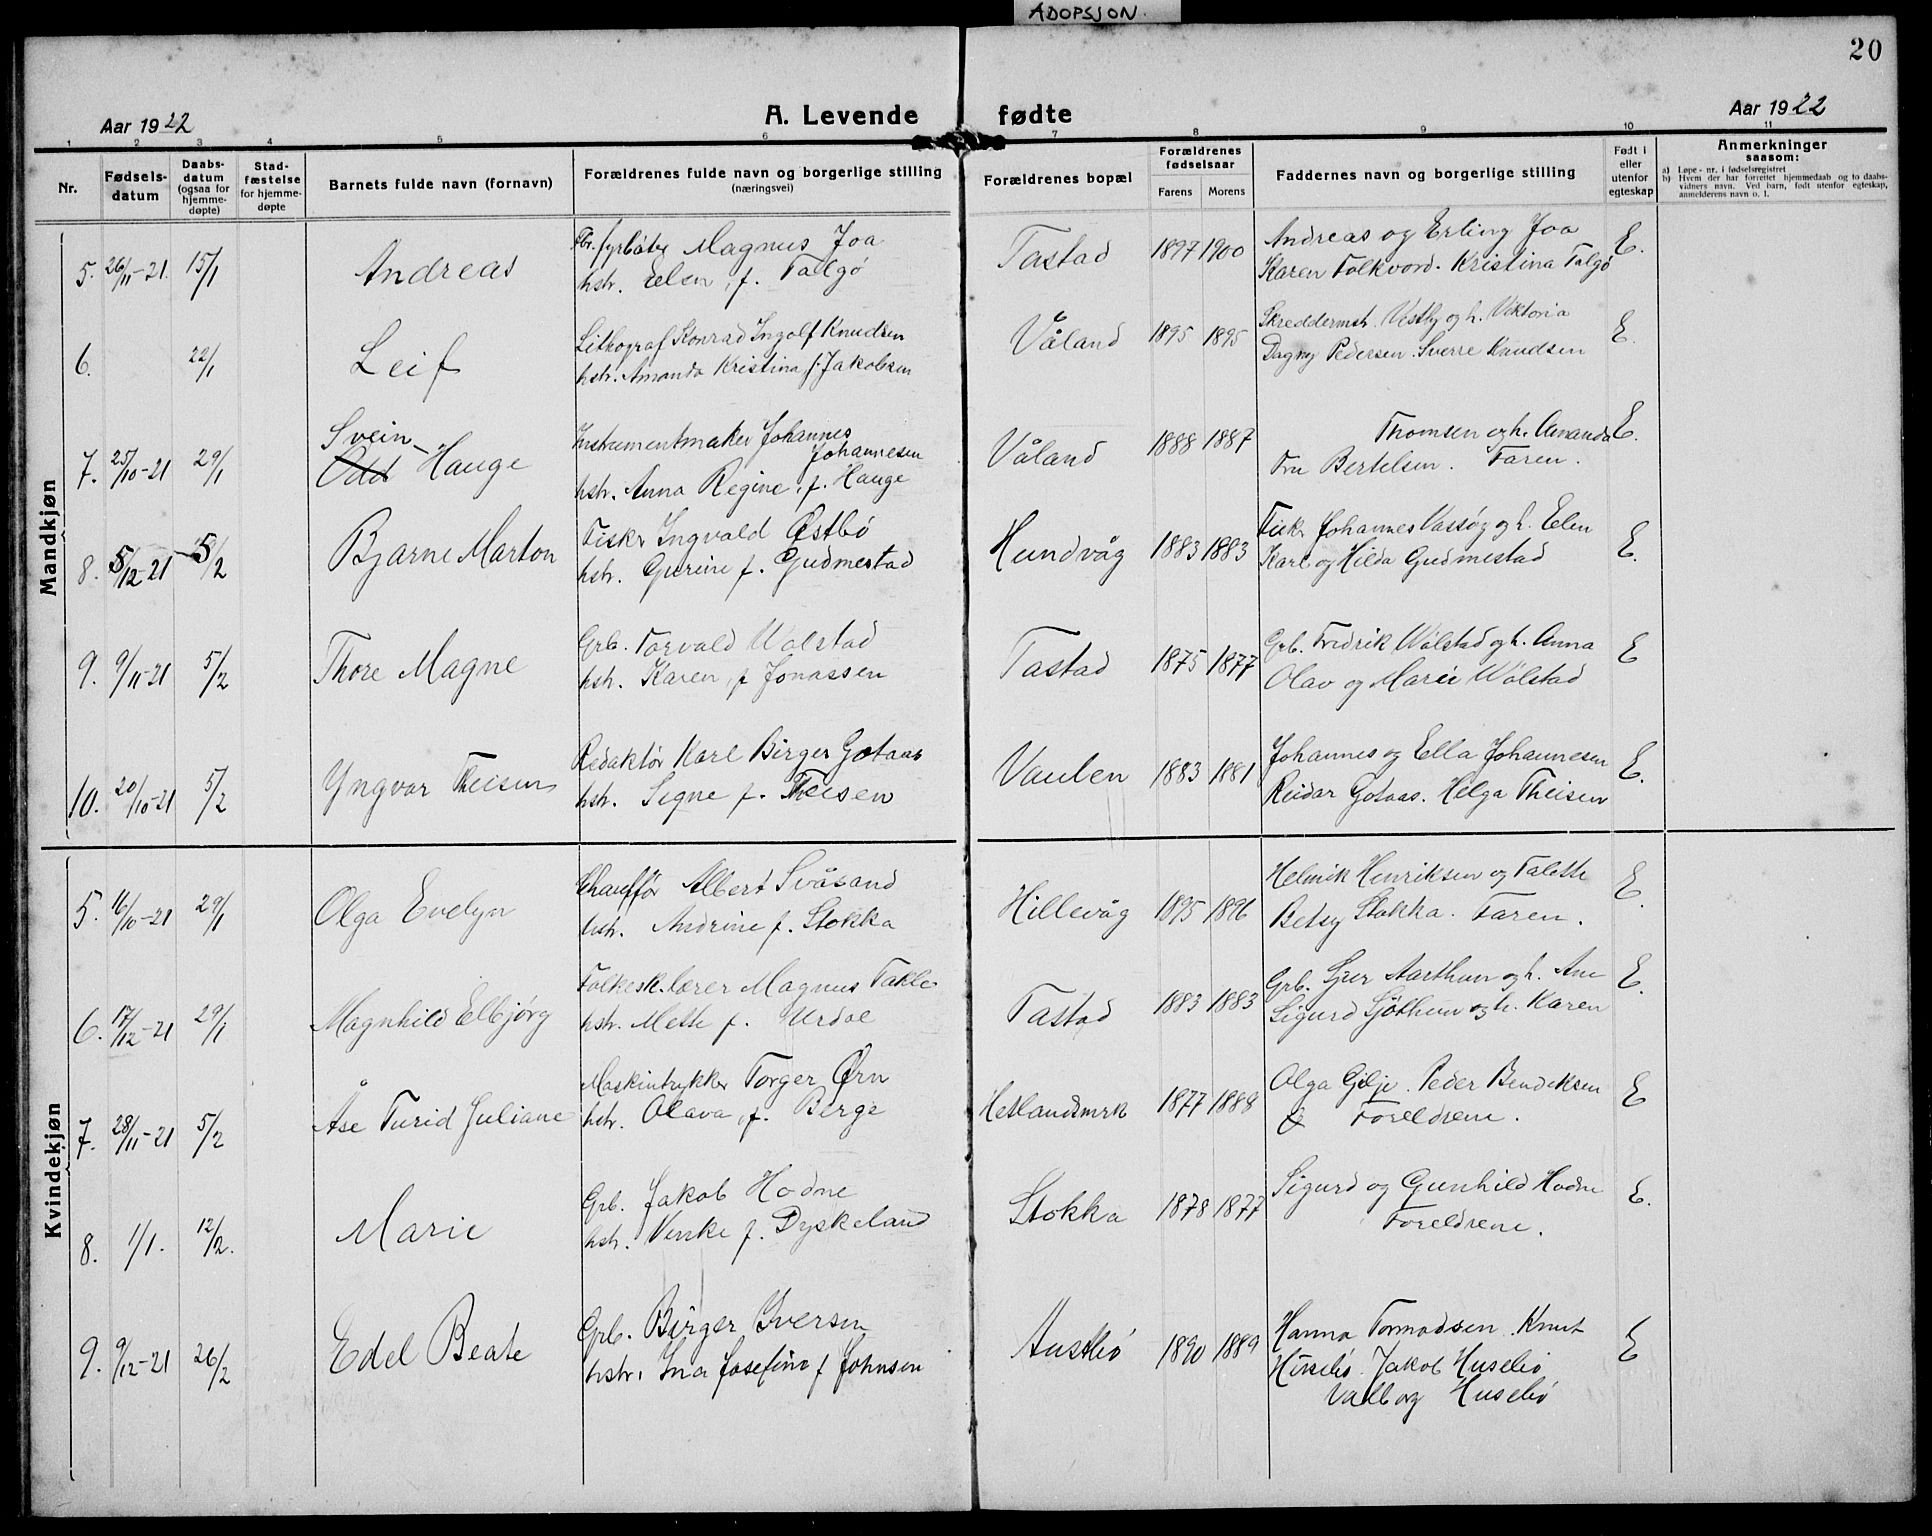 ADOPSJON.
20
Aar 1922
A. Levende fødte
Aar 1922
1 2 3 4 5 6 7 8 9 10 11
Nr.
Fødsels-datum
Daabs-datum (ogsaa for hjemme-døpte)
Stad-fæstelse for hjemme-døpte
Barnets fulde navn (fornavn)
Forældrenes fulde navn og borgerlige stilling
(næringsvei)
Forældrenes bopæl
Forældrenes fødselsaar
Farens Morens
Faddernes navn og borgerlige stilling
Født i eller utenfor egteskap
Anmerkninger
saasom:
a) Løpe-nr. i fødselsregistret
b) Hvem der har forrettet hjemmedaab og to daabs-
vidners navn. Ved barn, født utenfor egteskap,
anmelderens navn o. l.
Mandkjøn
Fbr. fyrbøter Magnus Joa
Andreas og Erling Joa
5. 26/11-21. 15/1 Andreas
hstr. Elen, f. Talgø
Tastad 1897 1900
Karen Folkvord. Kristina Talgø E.
Lithograf Konrad Ingolf Knudsen
Skreddermstr. Vestby og h. Viktoria
6. 22/1 Leif
hstr. Amanda Kristina, f. Jakobsen
Våland 1895 1895
Dagny Pedersen. Sverre Knudsen E.
Svein
Instrumentmaker Johannes
Johannesen
Thomsen og h. Amanda E.
7. 25/10-21 29/1 Odd Hauge
hstr. Anna Regine, f. Hauge
Våland 1888 1887
Fru Bertelsen. Faren.
Fisker Ingvald Østbø
Fisker Johannes Vassøy og h. Elen
8. 5/12-21 5/2 Bjarne Marton
hstr. Gurine f. Gudmestad
Hundvåg 1883 1883
Karl og Hilda Gudmestad E.
Grb. Torvald Wølstad
Grb. Fredrik Wølstad og h. Anna
9. 9/11-21 5/2 Thore Magne
hstr. Karen, f. Jonassen
Tastad 1875 1877
Olav og Marie Wølstad E
Redaktør Karl Birger Gotaas
Johannes og Ella Johannesen
10. 20/10-21 5/2 Yngvar Theisen
hstr. Signe f. Theisen
Vaulen 1883 1881
Reidar Gotaas. Helga Theisen E.
Kvindekjøn
Chauffør Albert Svåsand
Helmik Henriksen og Talette
5. 16/10-21 29/1 Olga Evelyn
hstr. Andrine f. Stokka
Hillevåg 1895 1896
Betsy Stokka. Faren. E.
Folkesk.lærer Magnus Takle
Grb. Sjur Aarthun og h. Ane
6. 17/12-21 29/1 Magnhild Elbjørg
hstr. Mette f. Urdal
Tastad 1883 1883
Sigurd Sjøthun og h. Karen E.
Maskintrykker Torger Ørn
Olga Gilje. Peder Bendiksen
7. 28/11-21 5/2 Åse Turid Juliane
hstr. Olava, f. Berge
Hetlandsmrk 1877 1888
& Foreldrene. E
Grb. Jakob Hodne
Sigurd og Gunhild Hodne
8. 1/1. 12/2. Marie
hstr. Venke f. Dyskeland
Stokka 1878 1877
Foreldrene. E.
Grb. Birger Iversen
Hanna Tormodsen. Knut
9. 9/12-21 26/2 Edel Beate
hstr. Ina Josefine f. Johnsen
Austbø 1890 1889
Husebø. Jakob Husebø E
Valborg Husebø